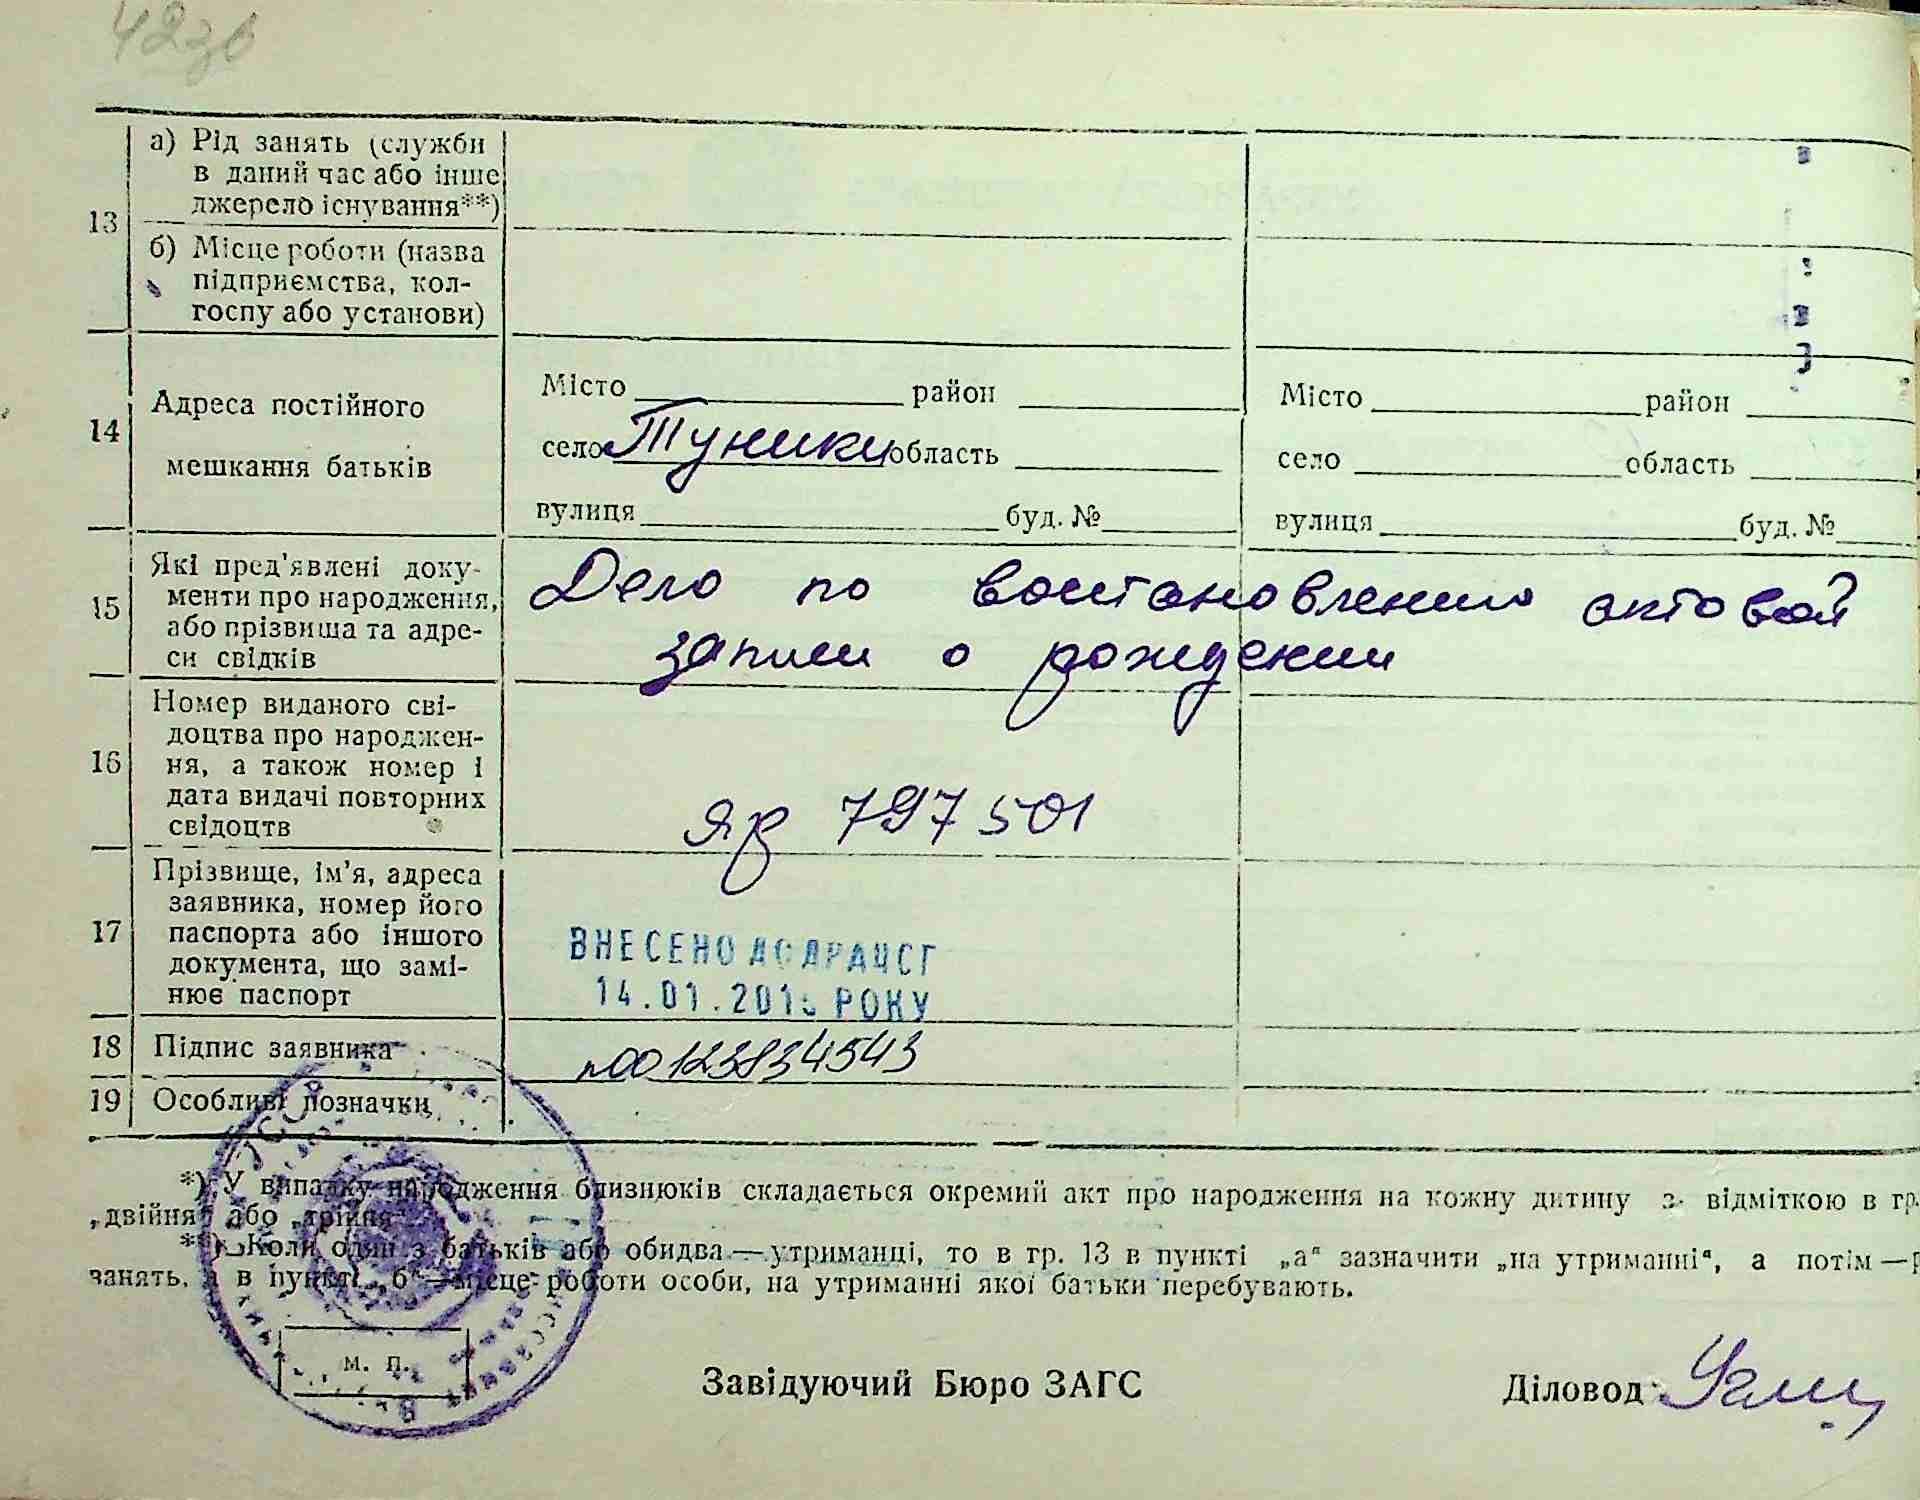 42зв
13
а) Рід занять (служби
в даний час або інше
джерело існування**)
б) Місце роботи (назва
підприємства, кол-
госпу або установи)
14
Адреса постійного
мешкання батьків
Місто район
село Туники область
вулиця буд. №
Місто район
село область
вулиця буд. №
15
Які пред'явлені доку-
менти про народження,
або прізвища та адре-
си свідків
Дело по востановлению актовой
записи о рождении
16
Номер виданого сві-
доцтва про народжен-
ня, а також номер і
дата видачі повторних
свідоцтв
797501
17
Прізвище, ім'я, адреса
заявника, номер його
паспорта або іншого
документа, що замі-
нює паспорт
ВНЕСЕНО ДО ДРАЦСГ
14.01. РОКУ
18 Підпис заявника
00123834543
19 Особливі позначки
*) У випадку народження близнюків складається окремий акт про народження на кожну дитину з відміткою в гр.
„двійня“ або „трійня“.
**) Коли один з батьків або обидва — утриманці, то в гр. 13 в пункті „а“ зазначити „на утриманні“, а потім —
занять, а в пункті „б“ — місце роботи особи, на утриманні якої батьки перебувають.
м. п.
Завідуючий Бюро ЗАГС
Діловод